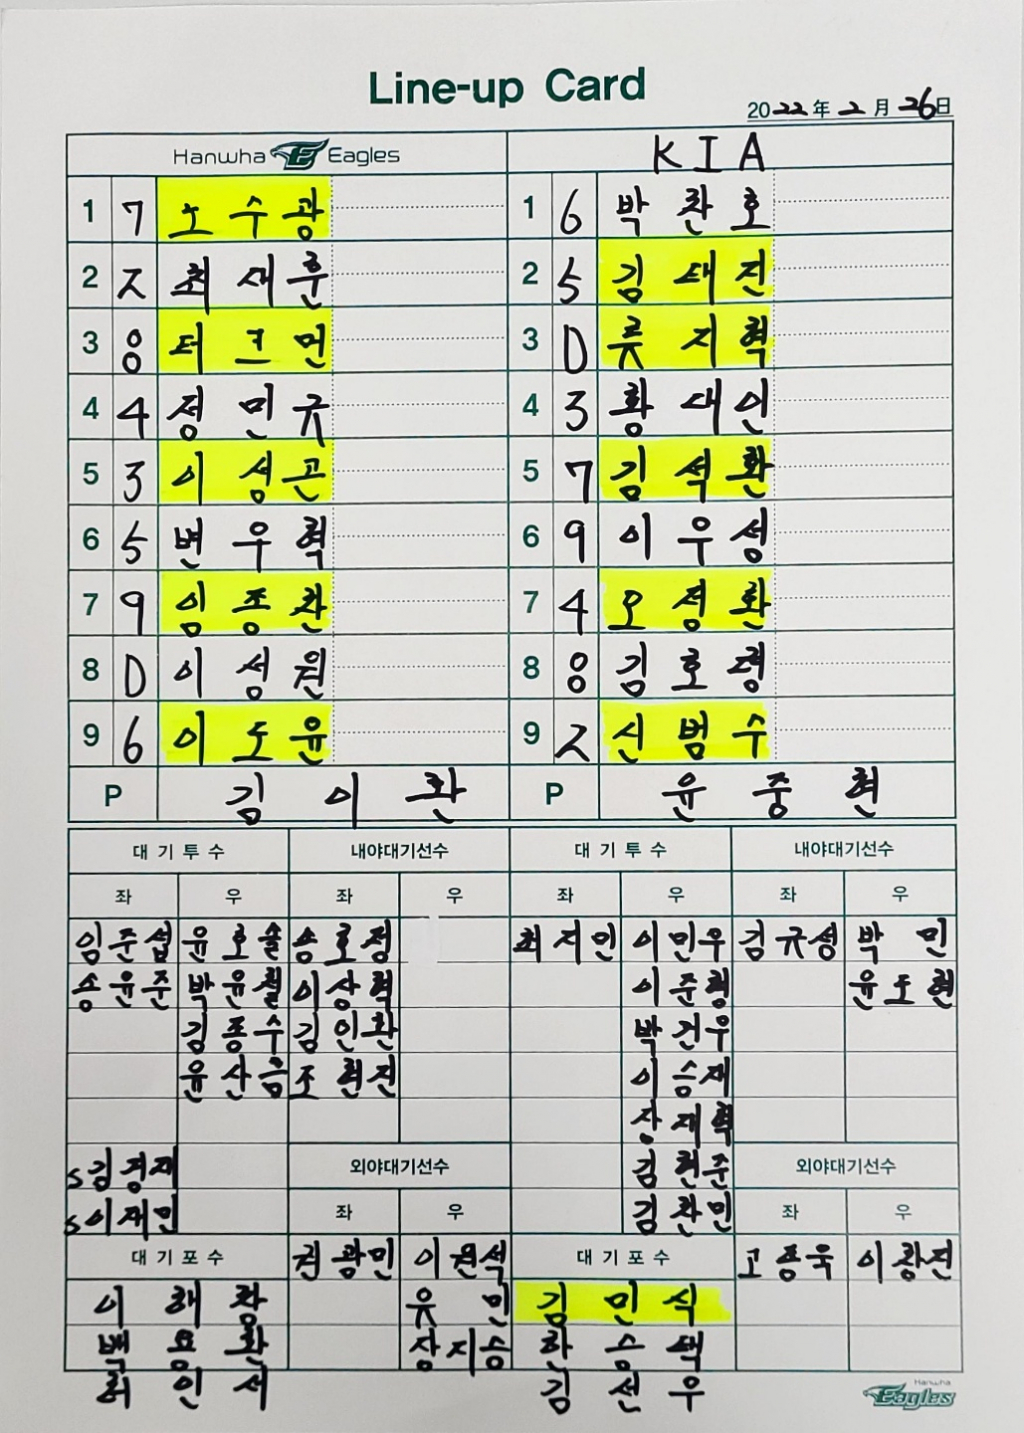 Line-up Card
2022年 2月 26日
Hanwha Eagles KIA
1 7 노수광 1 6 박찬호
2 2 최재훈 2 5 김태진
3 8 터크먼 3 D 류지혁
4 4 정민규 4 3 황대인
5 3 이성곤 5 7 김석환
6 5 변우혁 6 9 이우성
7 9 임종찬 7 4 오정환
8 D 이성원 8 8 김호령
9 6 이도윤 9 2 신범수
P 김이환 P 윤중현
대기투수 내야대기선수 대기투수 내야대기선수
좌 우 좌 우 좌 우 좌 우
임준섭 윤호솔 송호정 최지민 이민우 김규성 박민
송윤준 박윤철 이상혁 이준형 윤도현
김종수 김인환 박건우
윤산흠 조현진 이승재
장재혁
S김경재 외야대기선수 김현준 외야대기선수
S이재민 좌 우 김찬민 좌 우
대기포수 권광민 이원석 대기포수 고종욱 이창진
이해창 유민 김민식
백용환 장지승 한승택
허인서 김선우
Hanwha Eagles